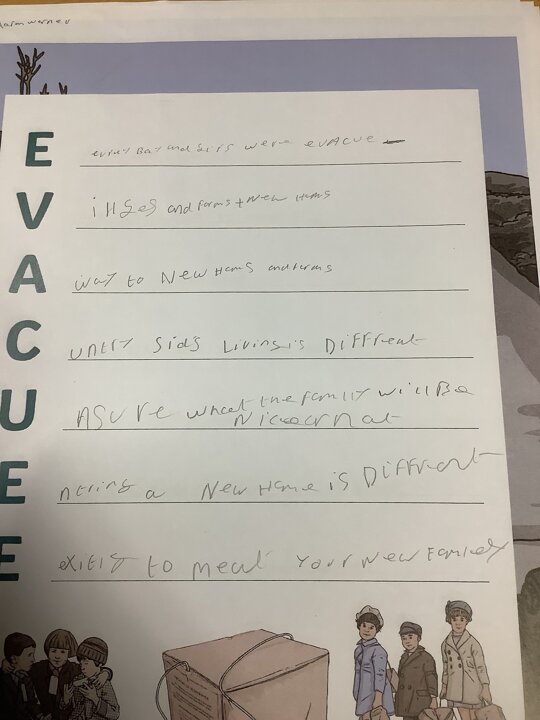 E every Boy and Girs were evacue
V iHges and farms + New Homs
A way to New Homs and farms
C untry Sids Living is Different
U nsure what the family will Be
Nice or not
E ntring a New Home is Different
E exitig to meat your New Familey